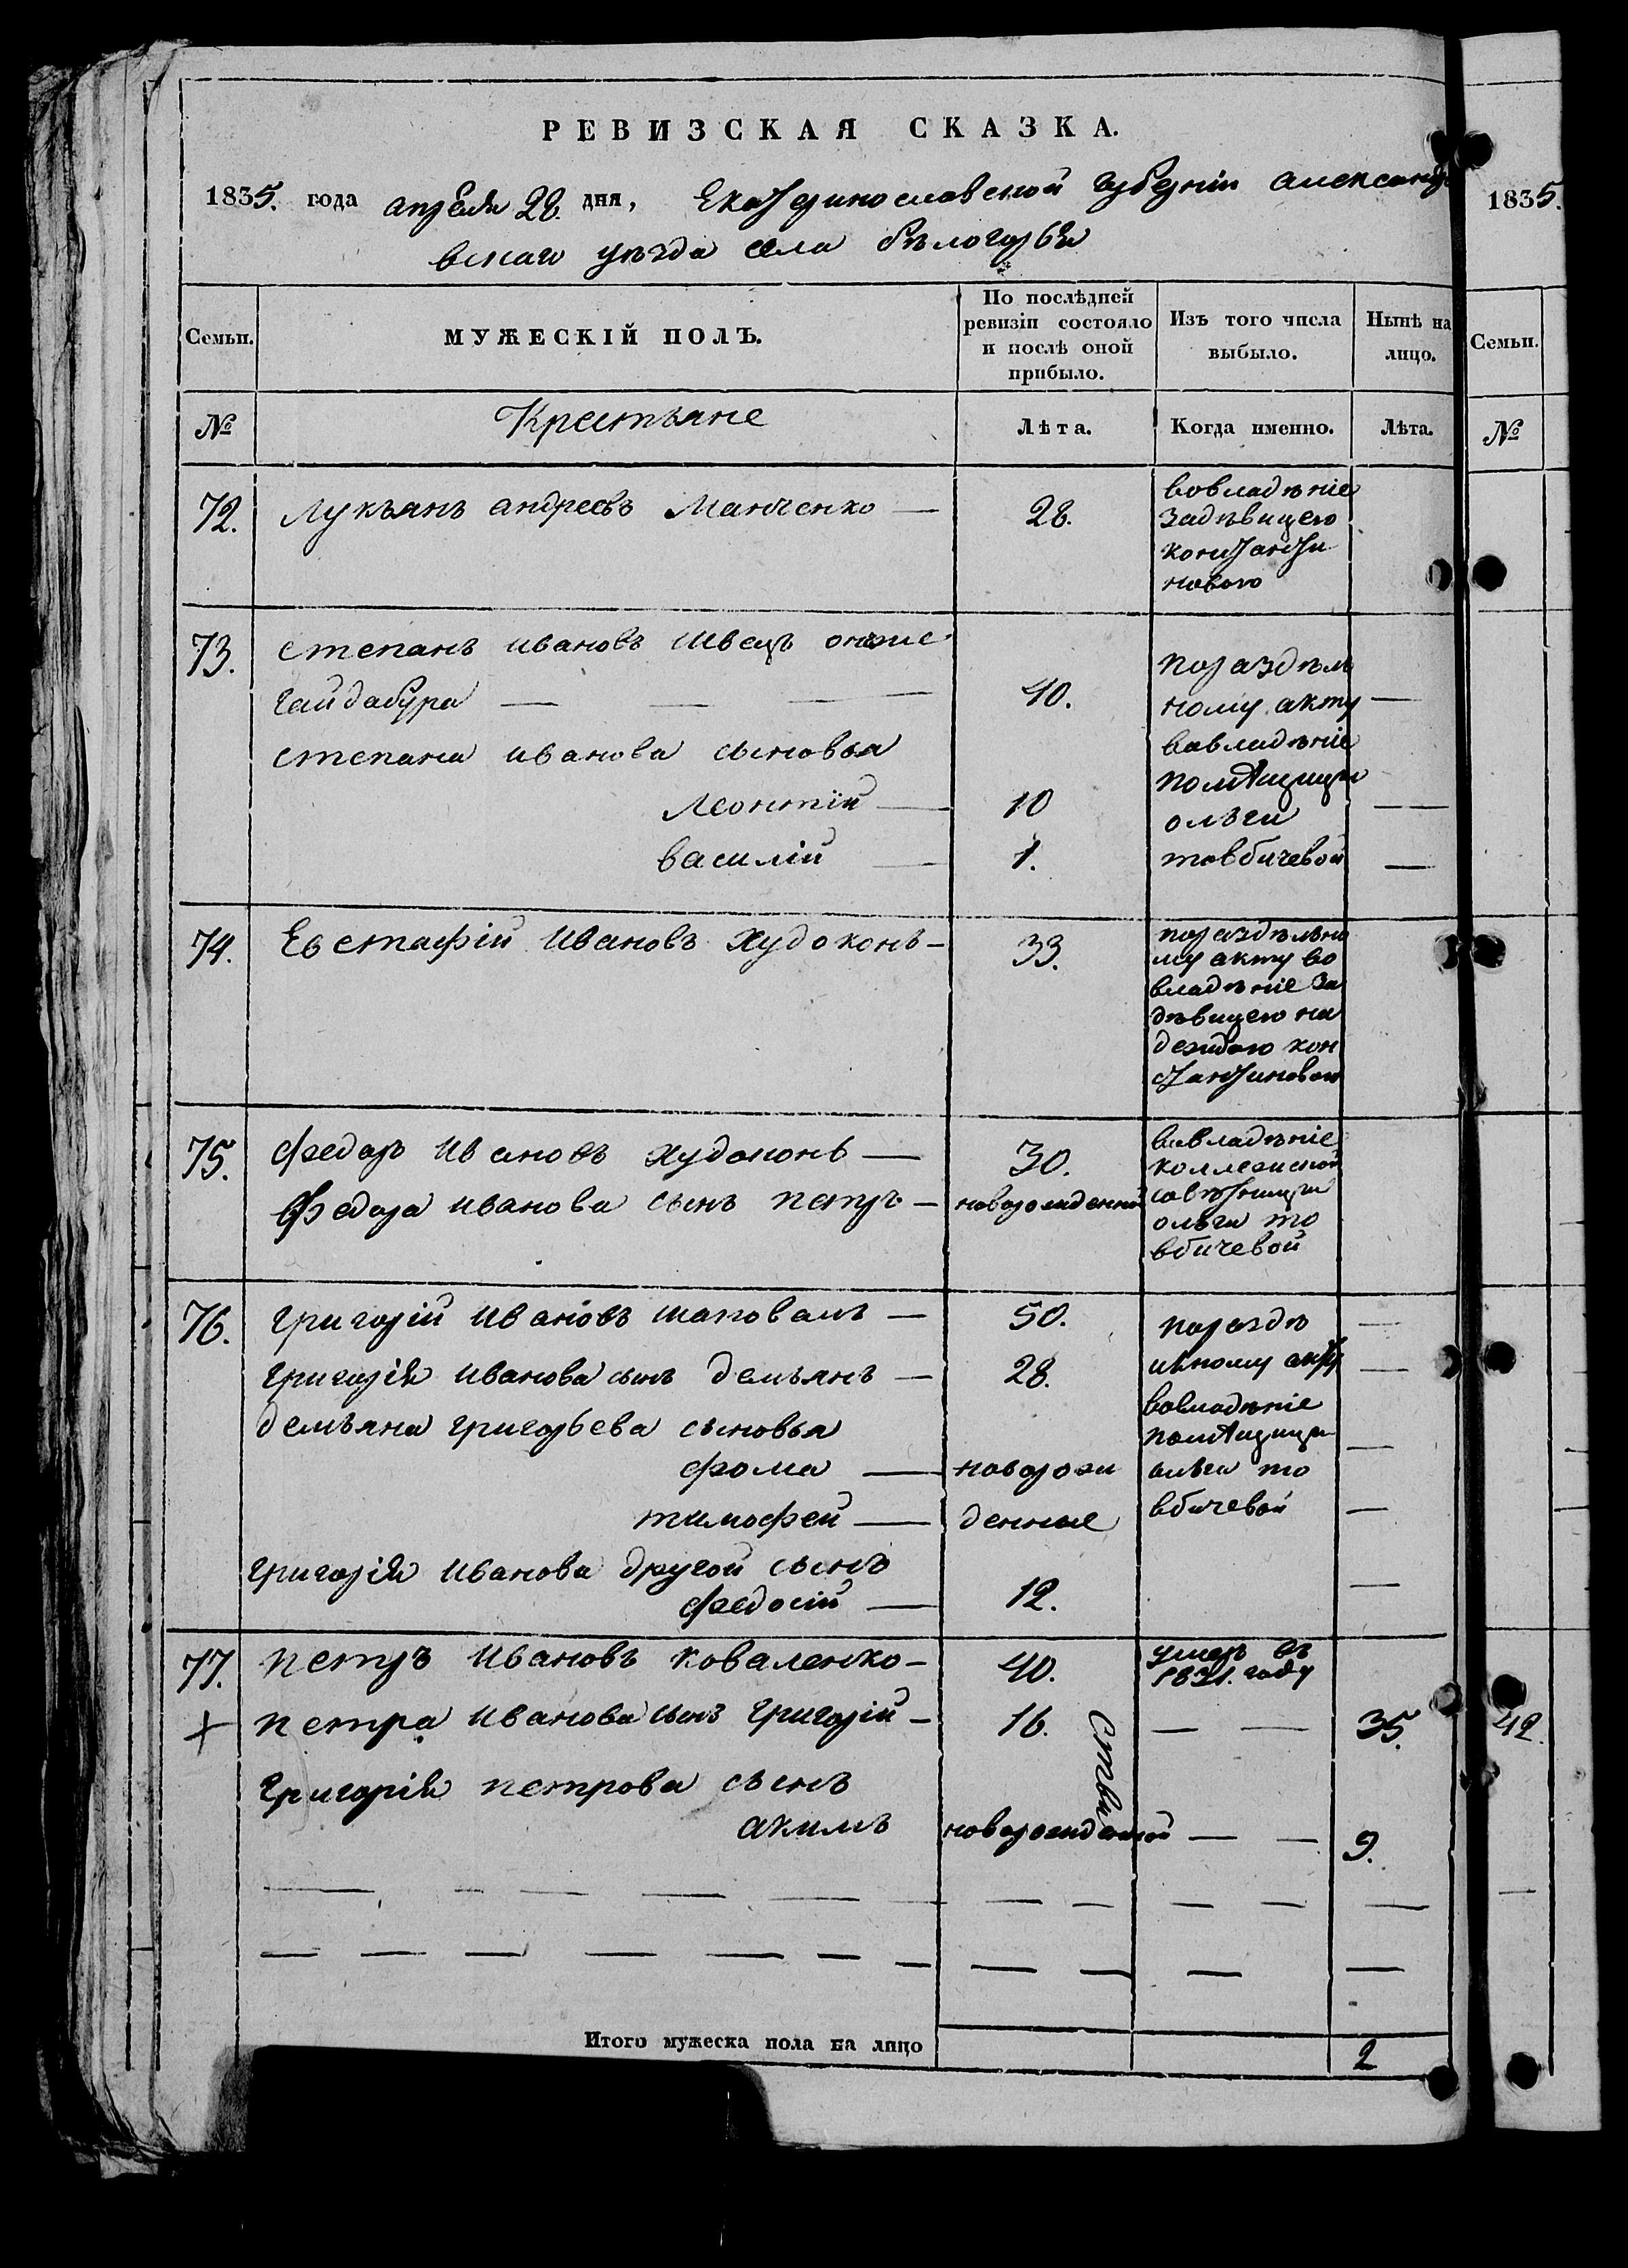 РЕВИЗСКАЯ СКАЗКА.
1835. года апреля 28. дня, Екатеринославской губернiи александро
вскаго уѣзда села бѣлогорья
Семьи.
МУЖЕСКIЙ ПОЛЪ.
По послѣдней
ревизiи состояло
и послѣ оной
прибыло.
Изъ того числа
выбыло.
Нынѣ на
лицо.
№
Крестьяне
Лѣта.
Когда именно.
Лѣта.
72. Лукьянъ андреевъ Манченко — 28.
вовладѣнiе
задѣвицею
константи
новою
73. степанъ ивановъ швецъ онже
гайдабура — — — 40.
степана иванова сыновья
Леонтiй — 10
василiй — 1.
поразделъ
ному акту —
вовладѣнiе
помѣщицы
ольги — —
товбичевой —
74. Евстафiй Ивановъ Худоконь — 33.
поразделъно
му акту во
владѣнiе за
дѣвицею на
деждою кон
стантиновою
75. федоръ Ивановъ худоконь — 30.
Федора иванова сынъ петръ — новорожденной
вовладѣнiе
коллежской
совѣтницы
ольги то
вбичевой
76. григорiй Ивановъ шаповалъ — 50.
григорiя иванова сынъ демьянъ — 28.
демьяна григорьева сыновья
фома — новорож
тимофей — денные
григорiя Иванова другой сынъ
федосiй — 12.
поразде —
льному акту —
вовладѣнiе
помѣщицы —
ольги то
вбичевой —
—
77. петръ Ивановъ коваленко — 40. умеръ въ
1831. году
+ петра Иванова сынъ григорiй — 16. — — 35.
григорiя петрова сынъ
акимъ новорожденной — — 9.
Итого мужеска пола на лицо 2
1835.
Семьи.
№
42.